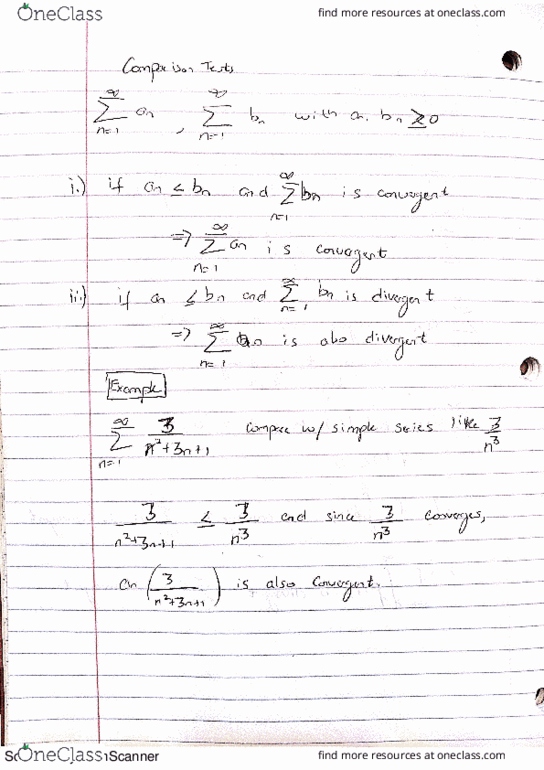 OneClass find more resources at oneclass.com
Comparison Tests
∞ ∑ n=1 an , ∞ ∑ n=1 bn with an, bn ≥ 0
i.) if an ≤ bn and ∞ ∑ n=1 bn is convergent
=> ∞ ∑ n=1 an is convergent
ii.) if an ≤ bn and ∞ ∑ n=1 bn is divergent
=> ∞ ∑ n=1 is also divergent
Example
∞ ∑ n=1 3/(n²+3n+1) compare w/ simple series like 3/n³
3/(n²+3n+1) ≤ 3/n³ and since 3/n³ converges,
an (3/(n²+3n+1)) is also convergent.
OneClass Scanner find more resources at oneclass.com